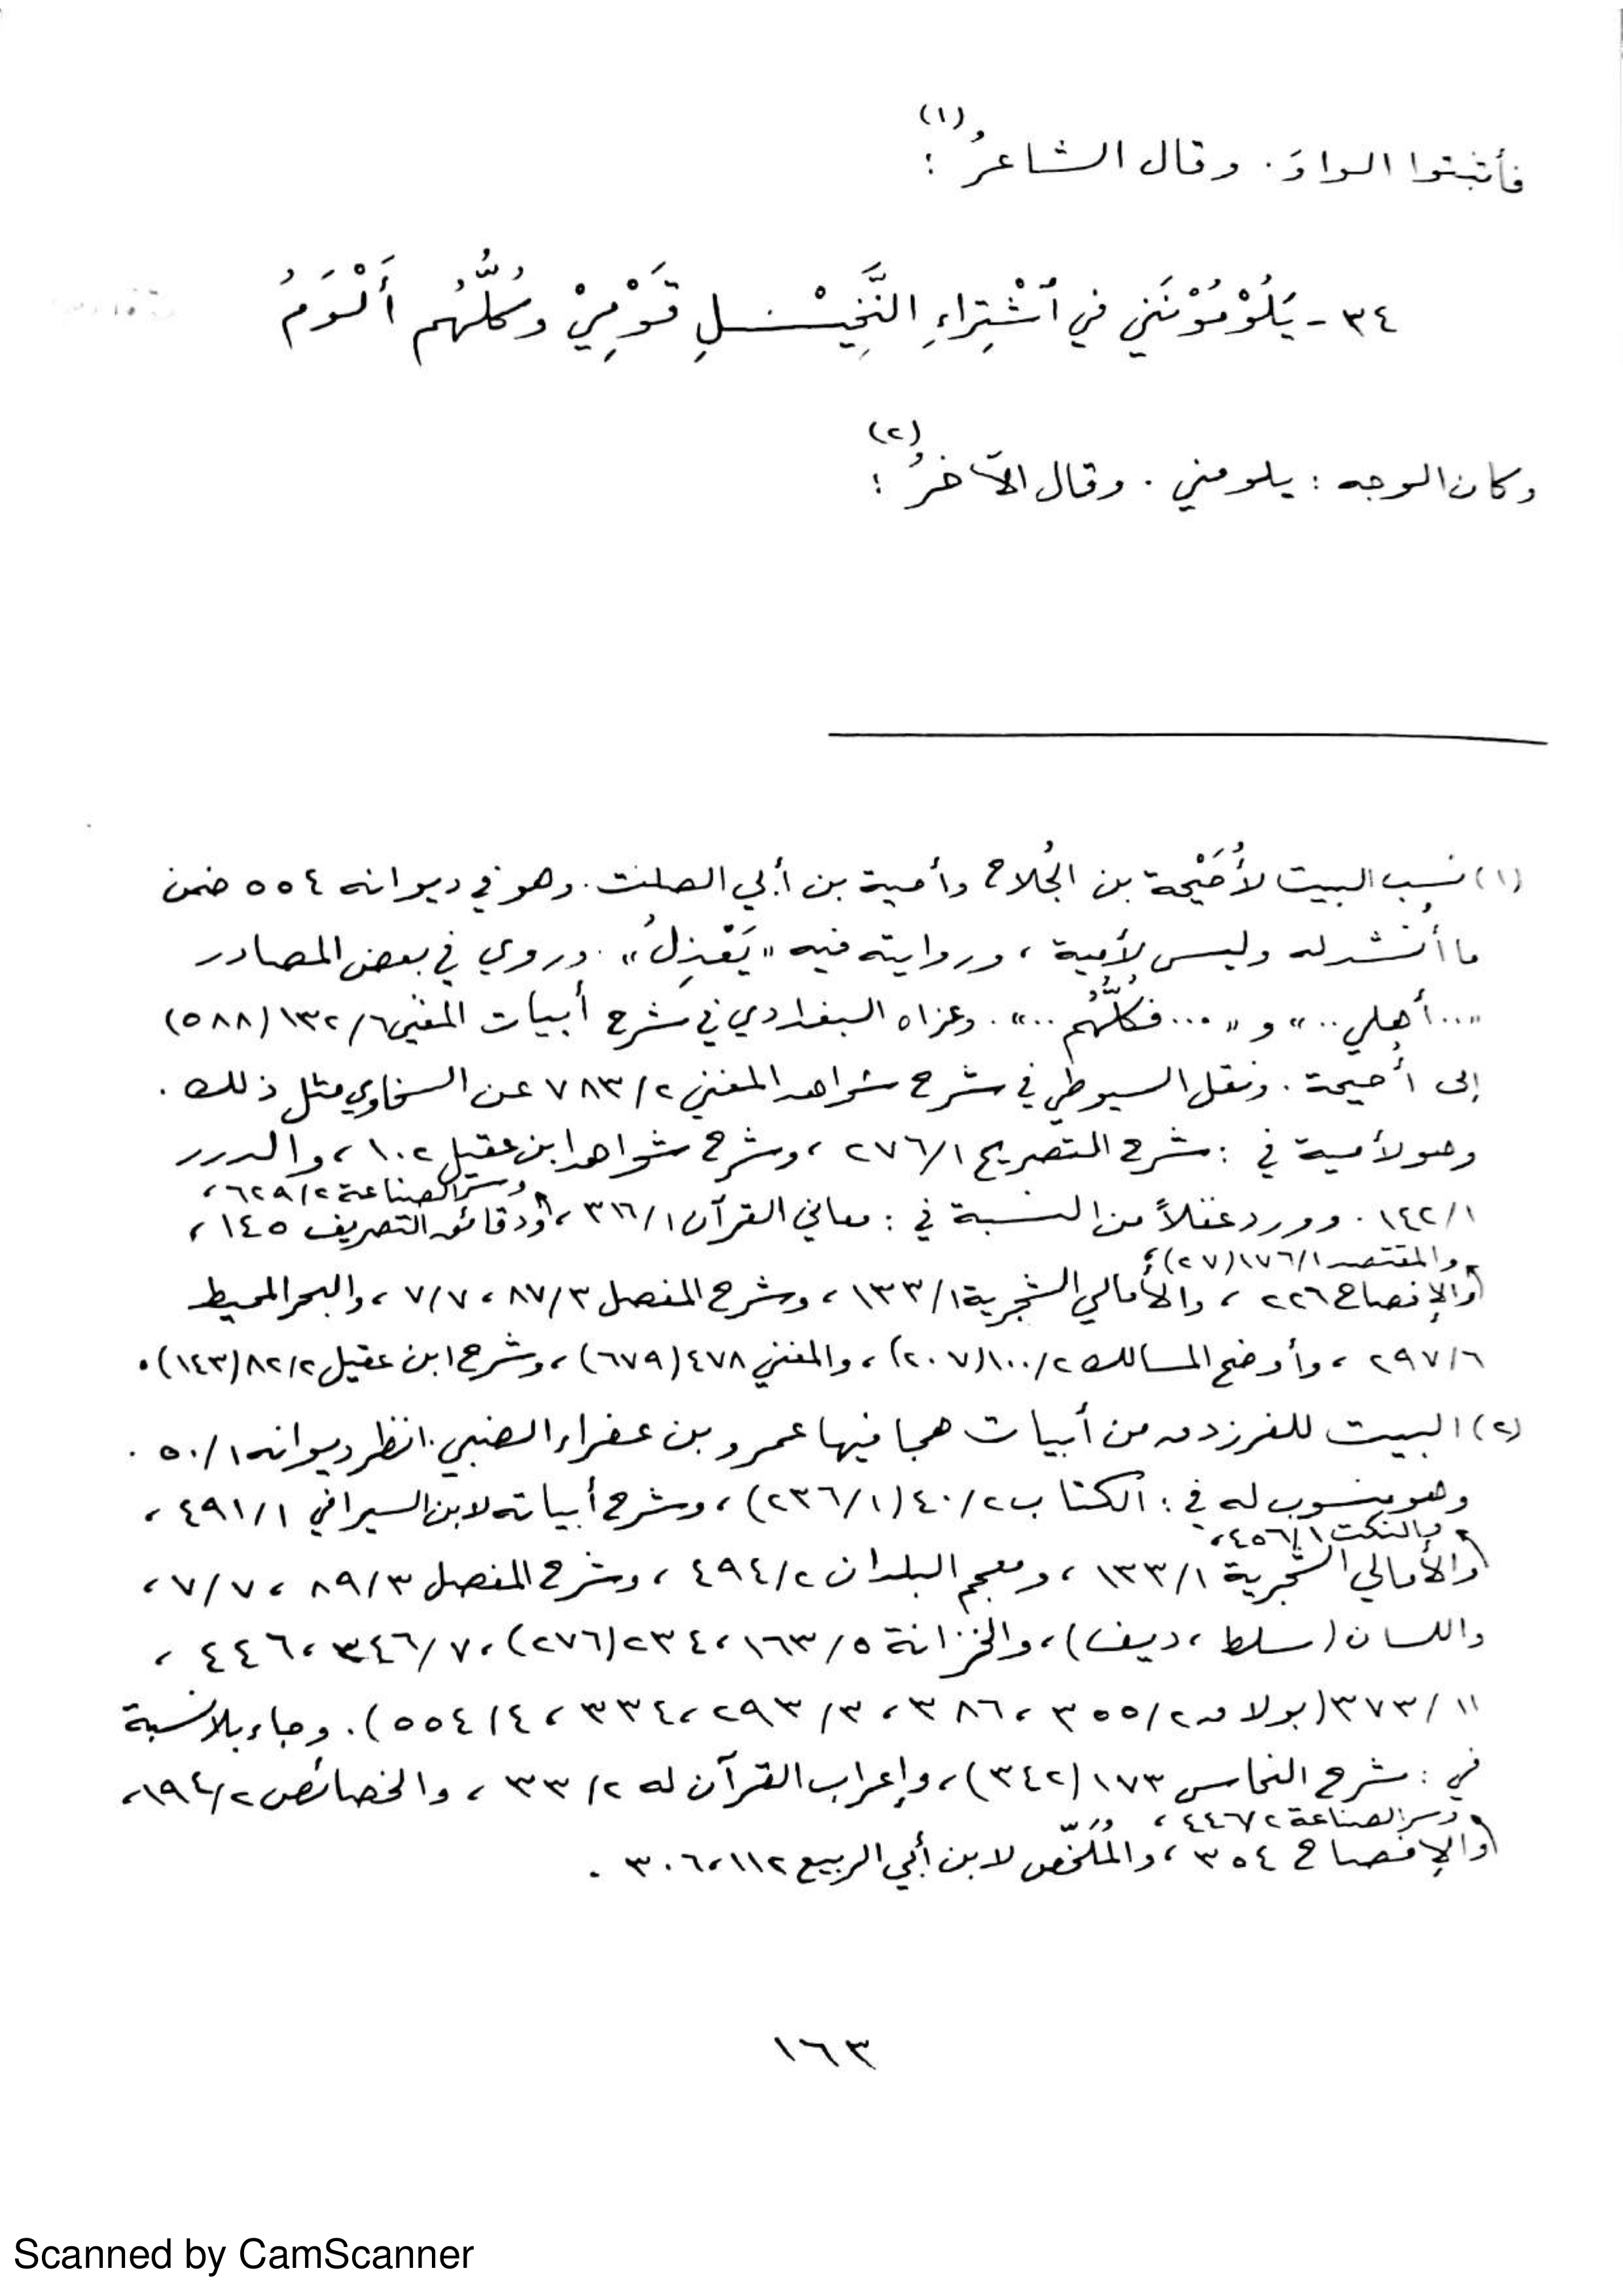 فأثبتوا الواوَ. وقال الشاعرُ(١) :
٣٤ - يَلُوْمُوْنَني في اُشْتِراءِ النَّخِيْـــلِ قَوْمِيْ وكُلُّهُم أَلْوَمُ
وكان الوجه : يلومني . وقال الآخرُ(٢) :
(١) نسب البيت لأُحَيْحة بن الجُلاح وأمية بن أبي الصلت. وهو في ديوانه ٥٥٤ ضمن
ما أُنشد له وليس لأمية ، وروايته فيه «يَعْذِلُ» . وروي في بعض المصادر
«..أهلي..» و «...فكُلُّهُم..» . وعزاه البغدادي في شرح أبيات المغني ١٣٢/٦ (٥٨٨)
إلى أُحيحة . ونقل السيوطي في شرح شواهد المغني ٧٨٣/٢ عن السخاوي مثل ذلك .
وهو لأمية في : شرح التصريح ٢٧٦/١ ، وشرح شواهد ابن عقيل ١٠٢ ، والدرر
وسر الصناعة ٦٢٩/٢ ،
١٤٢/١ . وورد غفلاً من النسبة في : معاني القرآن ٣١٦/١ ، ودقائق التصريف ١٤٥ ،
والمقتصد ١٧٦/١ (٢٧) ،
والإفصاح ٢٢٦ ، والأمالي الشجرية ١٣٣/١ ، وشرح المفصل ٨٧/٣ ، ٧/٧ ، والبحر المحيط
٢٩٧/٦ ، وأوضح المسالك ١٠٠/٢ (٢٠٧) ، والمغني ٤٧٨ (٦٧٩) ، وشرح ابن عقيل ٨٢/٢ (١٤٣) .
(٢) البيت للفرزدق من أبيات هجا فيها عمرو بن عفراء الضبي . انظر ديوانه ٥٠/١ .
وهو منسوب له في : الكتاب ٤٠/٢ (٢٣٦/١) ، وشرح أبياته لابن السيرافي ٤٩١/١ ،
والنكت ٤٥٦/١ ،
والأمالي الشجرية ١٣٣/١ ، ومعجم البلدان ٤٩٤/٢ ، وشرح المفصل ٨٩/٣ ، ٧/٧ ،
واللسان (سلط ، ديف) ، والخزانة ١٦٣/٥ ، ٢٣٤ (٢٧٦) ، ٣٤٦/٧ ، ٤٤٦ ،
٣٧٣/١١ (بولاق ٣٥٥/٢ ، ٣٨٦ ، ٢٩٣/٣ ، ٣٣٤ ، ٥٥٤/٤) . وجاء بلا نسبة
في : شرح النحاس ١٧٣ (٣٤٢) ، وإعراب القرآن له ٣٣/٢ ، والخصائص ١٩٤/٢ ،
وسر الصناعة ٤٤٦/٢ ،
والإفصاح ٣٥٤ ، والمُلَخّص لابن أبي الربيع ١١٢ ، ٣٠٦ .
١٦٣
Scanned by CamScanner